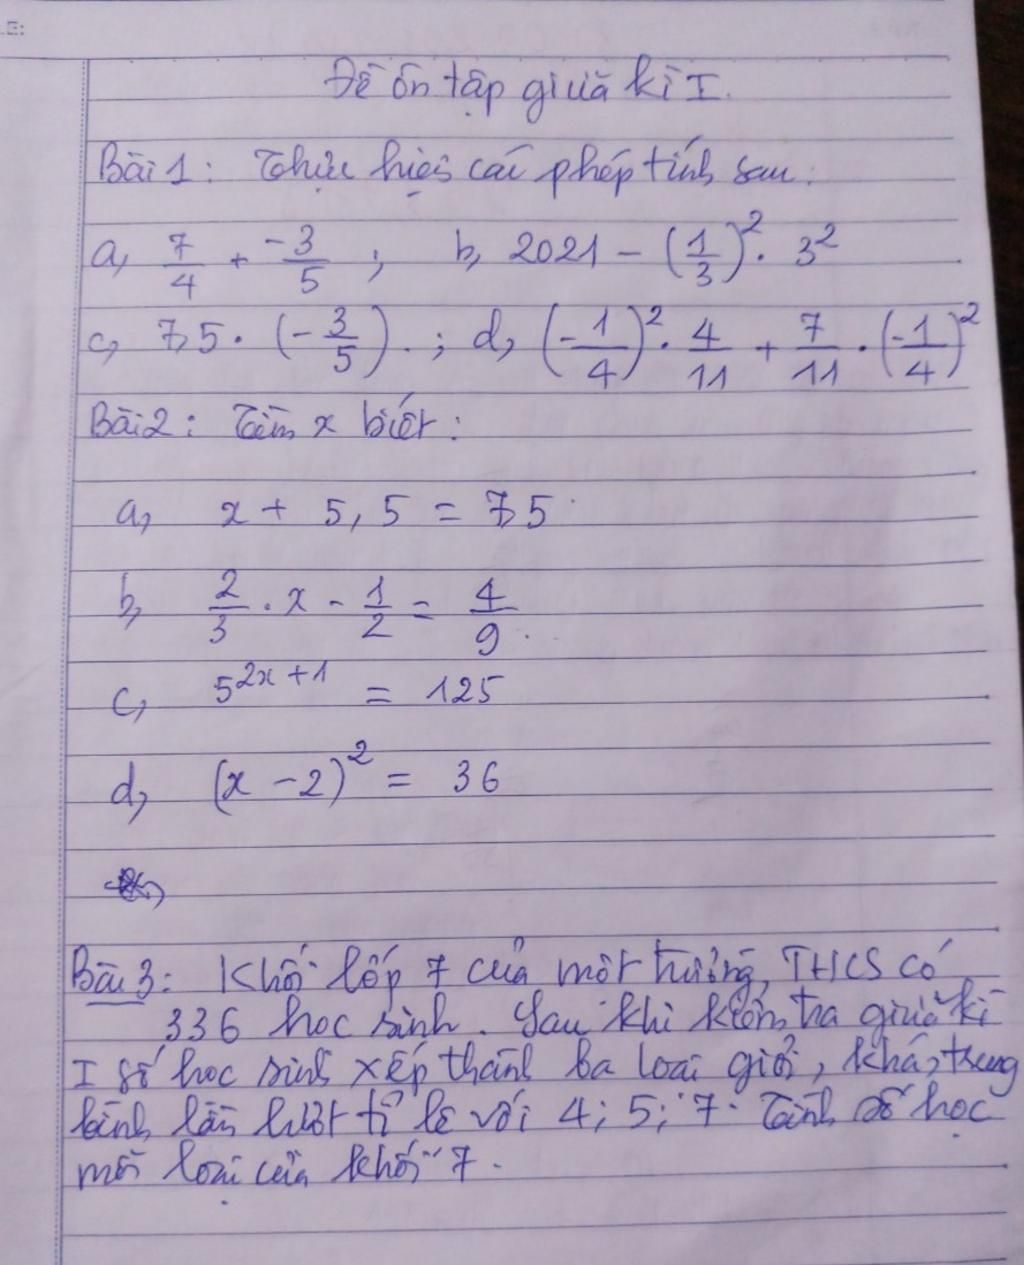 Đề ôn tập giữa kì I.
Bài 1: Thực hiện các phép tính sau:
a, 7/4 + -3/5 ; b, 2021 - (1/3)² . 3²
c, 7,5 . (-3/5) . ; d, (-1/4)² . 4/11 + 7/11 . (-1/4)²
Bài 2: Tìm x biết:
a, x + 5,5 = 7,5
b, 2/3 . x - 1/2 = 4/9 .
c, 5^(2x+1) = 125
d, (x - 2)² = 36
Bài 3: Khối lớp 7 của một trường THCS có
336 học sinh. Sau khi kiểm tra giữa kì
I số học sinh xếp thành ba loại giỏi, khá, trung
bình lần lượt tỉ lệ với 4; 5; 7. Tính số học
mỗi loại của khối 7.